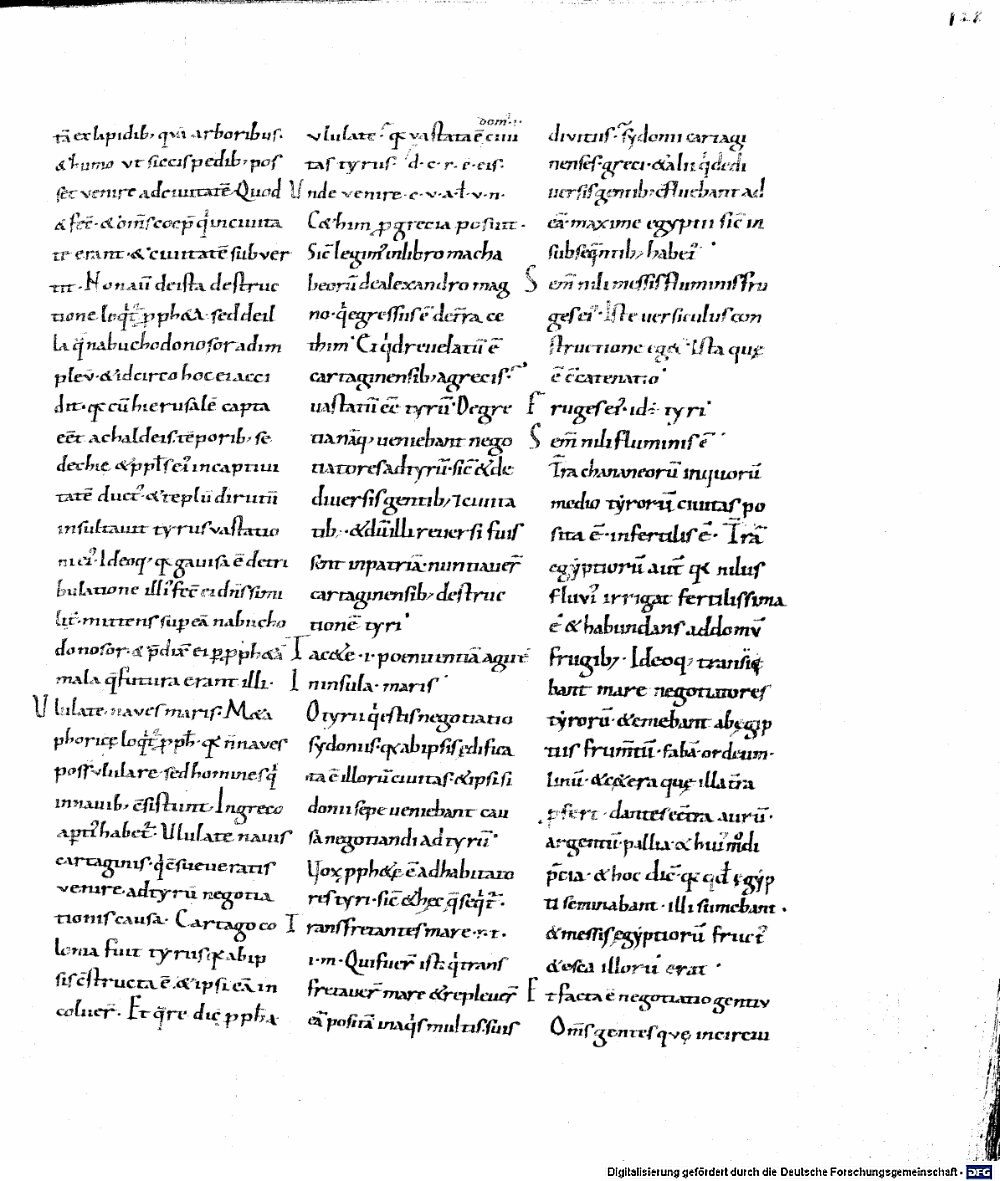 128
tā ex lapidib; quā arboribus.
& humo ut siccis pedib; pos
set venire ad ciuitatē. Quod
& fec̄. & om̄s coep̄ q̇ in ciuita
te erant. & ciuitatē subver
tit. Nonau͞ deista destruc
tione loq̇t͛ pph&a. sed deil
la q̄ nabuchodonosor adim
plev̄. & idcirco hoc ei acci
dit. q̨ cū hierusalē capta
eēt achaldeis tēporib; se
dechie. & ppł̄s ei͛ incaptiui
tatē duct͛. & teplū dirutū
insultauit tyrus vastatio
ni ei͛. Ideoq; q̨ gauisa ē detri
bulatione illi͛ fec̄ ei dn̄s simi
lit͛. mittens sup eā nabucho
donosor. & p̄dix̄ ei p pph&ā
mala q̄ futura erant illi.
Ululate. naves maris. M&a
phoricę loq̇t͛ pph̄. q̨ n̄ naves
poss̄ ululare sed homines q̇
in nauib; c̄sistunt. In greco
apti͛ habet͛. Ululate nauis
cartaginis. q̄ c̄sueueratis
venire. ad tyrū negotia
tionis causa. Cartago co
lonia fuit tyrus q̨ ab ip
sis c̄structa ē. & ipsi eā in
coluer̄. Et q̄re dic̨ pph&a
domꝰ
ululate. q̨ vastata ē ciui
tas tyrus. d. c. r. ē. eis.
Unde venire. c. v. a. ł. v. n.
C&him p grecia posuit.
Sic̄ legim͛ in libro macha
beorū de alexandro mag
no. q̇ egressus ē de t̄ra ce
thim. Ci q̇d revelatū ē
cartaginensib; a grecis.
uastatū eē tyrū. De gre
tia nāq; ueniebant nego
tiatores ad tyrū. sic̄ & de
diversis gentib; 7 ciuita
tib;. & dū illi reversi fuis
sent in patriā. nuntiauer̄
cartaginensib; destruc
tionē tyri.
Tac&e. i. poenitentiā agite
Insula. maris.
O tyrii q̇ estis negotiatio
sydonis. q̨ ab ipsis ędifica
ta ē illorū ciuitas. & ipsi si
donii sepe ueniebant cau
sa negotiandi ad tyrū.
Vox pph&ę ē ad habitato
res tyri. sic̄ & hęc q̄ seq̇t͛.
Transfretantes mare. r. t.
i. m. Qui fuer̄ isti q̇ trans
fretauer̄ mare & repleuer̄
eā positā in aq̇s multis suis
divitiis. Sydonii cartagi
nenses. greci. & alii q̇ de di
versis gentib; c̄fluebant ad
eā. maxime egyptii sic̄ in
subseq̄ntib; habet͛.
Sem̄ nili messis fluminis fru
ges ei͛. Iste uersiculus con
structione eg&. Ista quę
ē c̄catenatio.
Fruges ei͛. id ē tyri.
Sem̄ nili fluminis ē.
T̄ra chananeorū in quorū
medio tyrorū ciuitas po
sita ē. infertilis ē. T̄ra
egyptiorū aut̄ q̨ nilus
fluvi͛ irrigat fertilissima
ē & habundans ad domū
frugib;. Ideoq; transie
bant mare negotiatores
tyrorū. & emebant ab ęgip
tiis frum̄tū. fabā. ordeum.
linū. & c&era quę illa t̄ra
pfert. dantes ec̄tra aurū.
argentū. pallia. & hui͛ modi
p̄tia. & hoc dic̄ q̨ qd̄ ęgyp
tii seminabant. illi sumebant.
& messis egyptiorū fruct͛
& esca illorū erat.
Et facta ē negotiatio gentiū
Om̄s gentes quę in circui
Digitalisierung gefördert durch die Deutsche Forschungsgemeinschaft - DFG